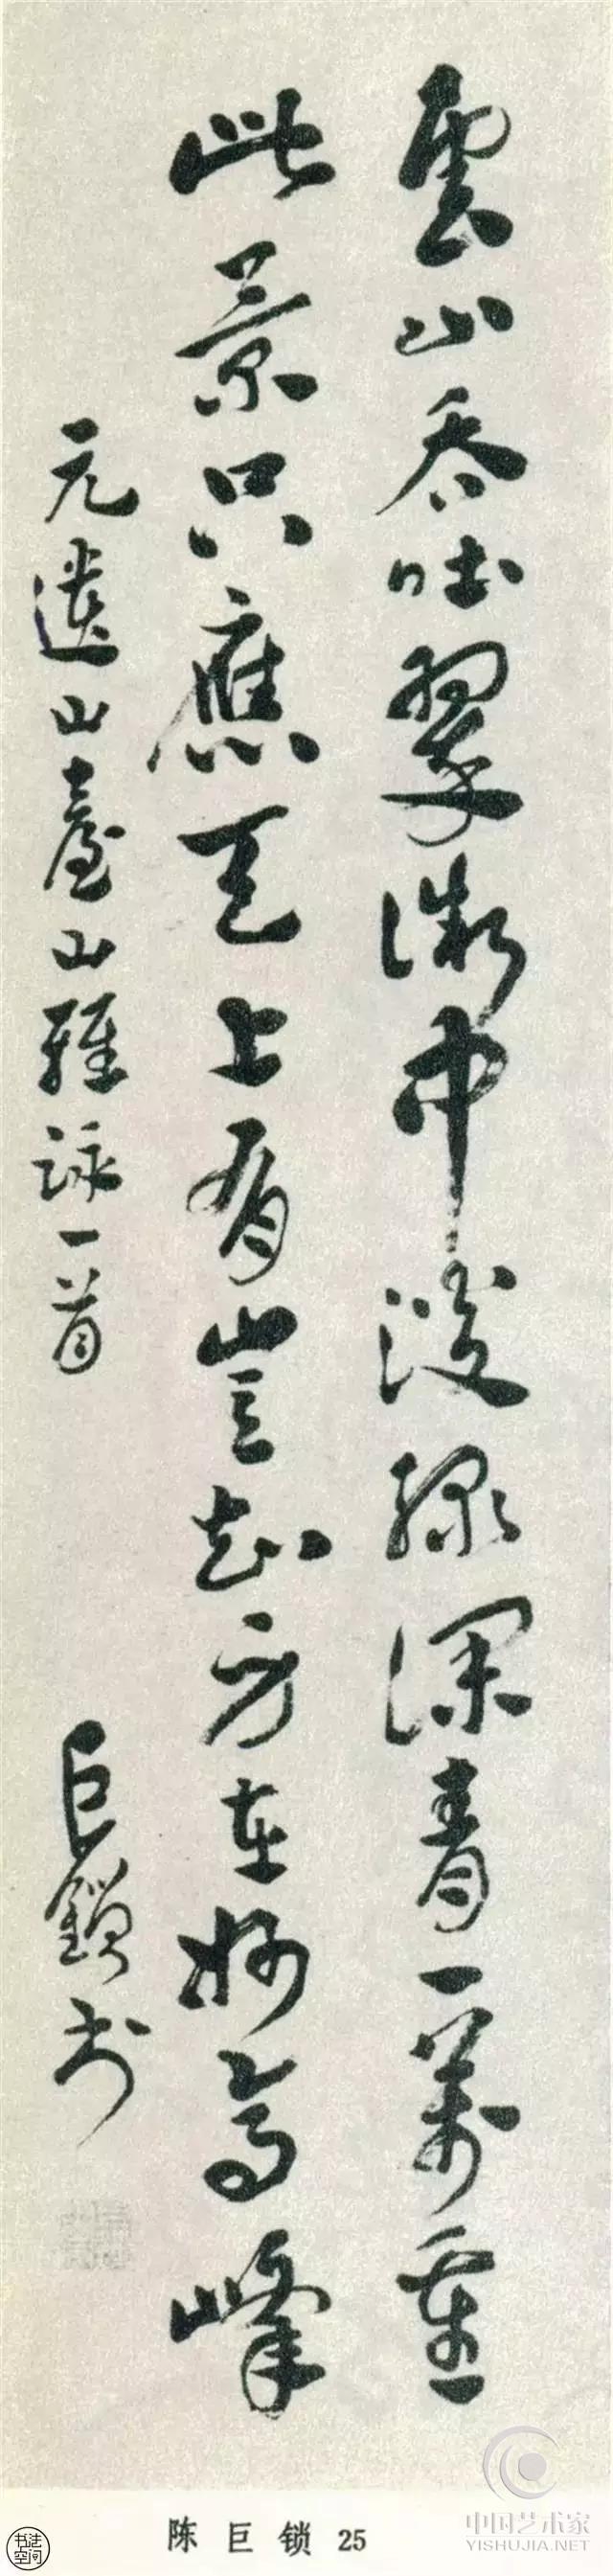 雲山吞吐翠微中淡綠深青一萬重
此景只應天上有豈知身在妙高峰
元遺山臺山雜詠一首
巨鎖书
陈巨锁 25
书法空间
中国艺术家
YISHUJIA.NET